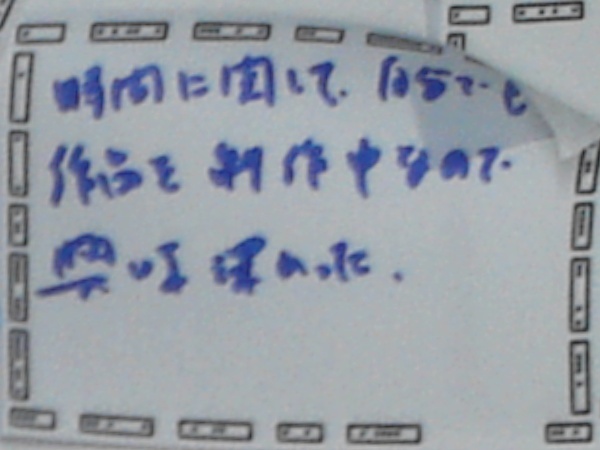 時間に関して、自分でも
作品を制作中なので、
興味深かった。